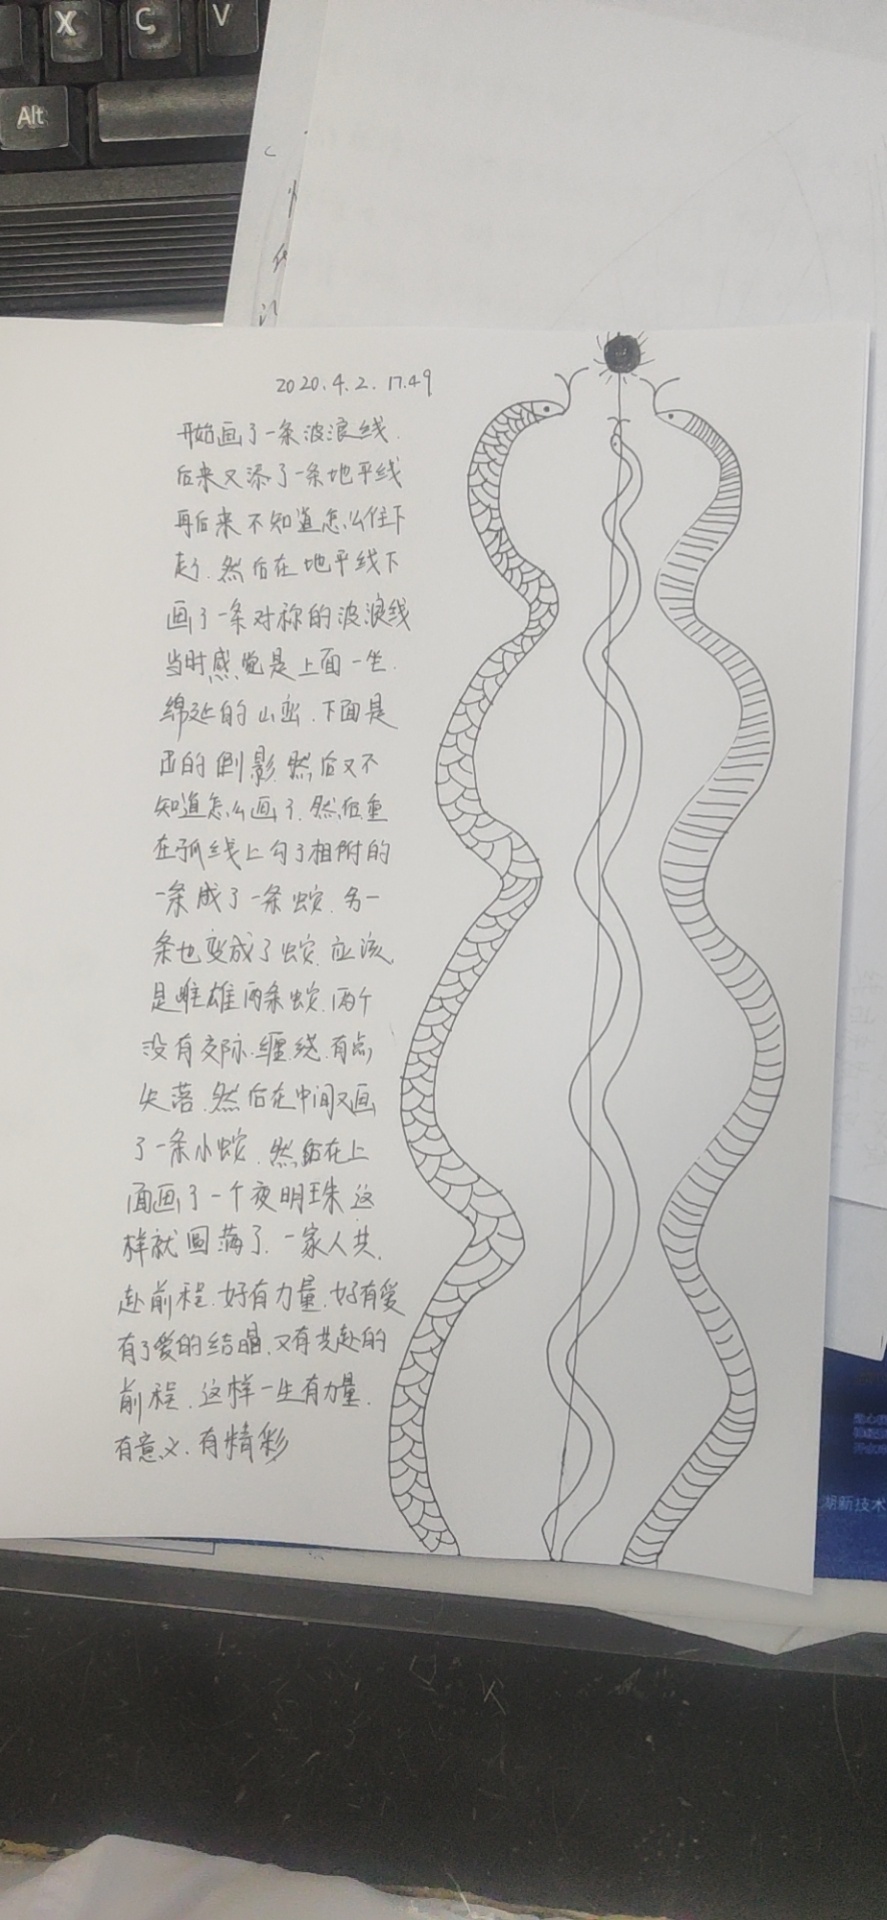 X
C
V
Alt
2020.4.2.17.49
开始画了一条波浪线.
后来又添了一条地平线
再后来不知道怎么往下
走了.然后在地平线下
画了一条对称的波浪线
当时感觉是上面一坐.
绵延的山峦.下面是
的倒影.然后又不
知道怎么画了.然后重
在弧线上勾了相附的
一条成了一条蛇.另一
条也变成了蛇.应该
是雌雄两条蛇.两个
没有交际.缠绕.有点
失落.然后在中间又画
了一条小蛇.然后在上
面画了一个夜明珠这
样就圆满了.一家人共.
赴前程.好有力量.好有爱
有了爱的结晶.又有共赴的
前程.这样一生有力量.
有意义.有精彩
湖新技术